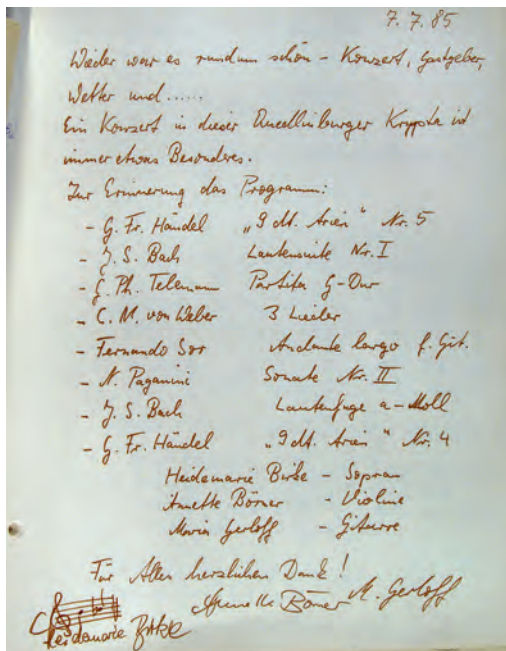 7.7.85
Wieder war es rundum schön – Konzert, Gastgeber,
Wetter und......
Ein Konzert in dieser Quedlinburger Krypta ist
immer etwas Besonderes.
Zur Erinnerung das Programm:
- G. Fr. Händel „9 dt. Arien" Nr. 5
- J. S. Bach Lautensuite Nr. I
- G. Ph. Telemann Partita G-Dur
- C. M. von Weber 3 Lieder
- Fernando Sor Andante largo f. Git.
- N. Paganini Sonate Nr. II
- J. S. Bach Lautenfuge a-Moll
- G. Fr. Händel „9 dt. Arien" Nr. 4
Heidemarie – Sopran
Annette Börner – Violine
Gerloff – Gitarre
Für Alles herzlichen Dank!
Annette Börner M. Gerloff
Heidemarie